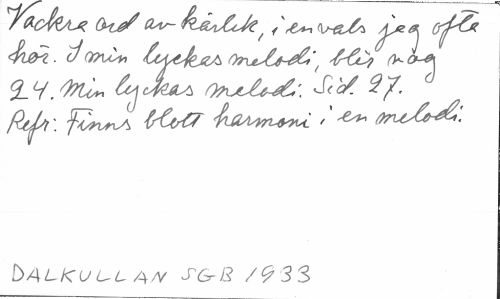 Vackra ord av kärlek, i en vals jag ofta
hör. I min lyckas melodi, blir nog
24. Min lyckas melodi. Sid. 27.
Refr: Finns blott harmoni i en melodi.
DALKULLAN SGB 1933